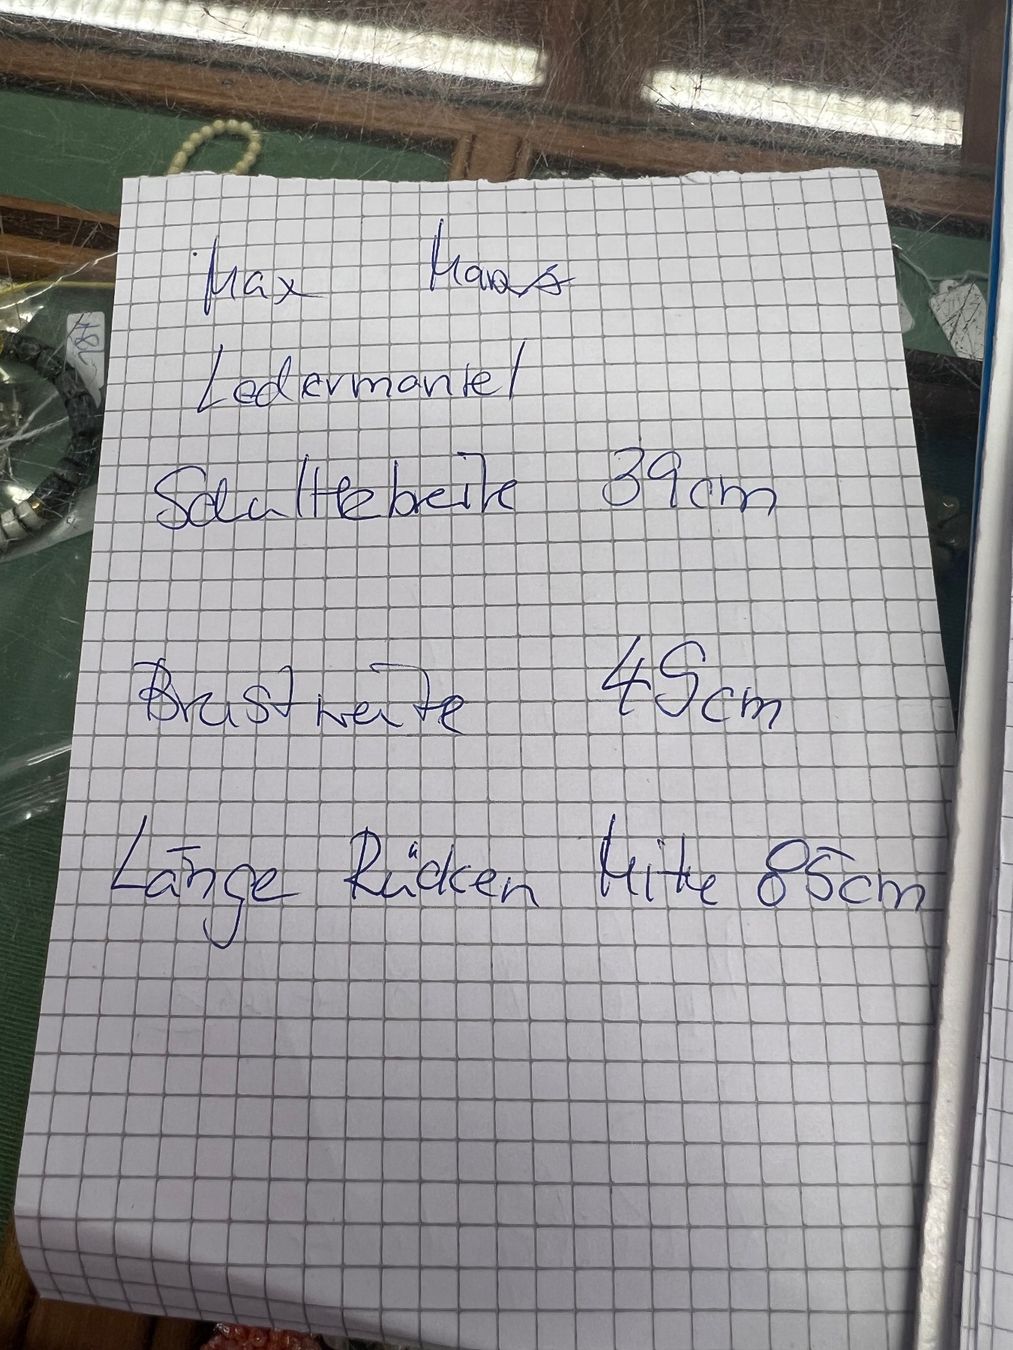 Max Mara
Ledermantel
Schulterbreite 39cm
Brustweite 45cm
Länge Rücken Mitte 85cm